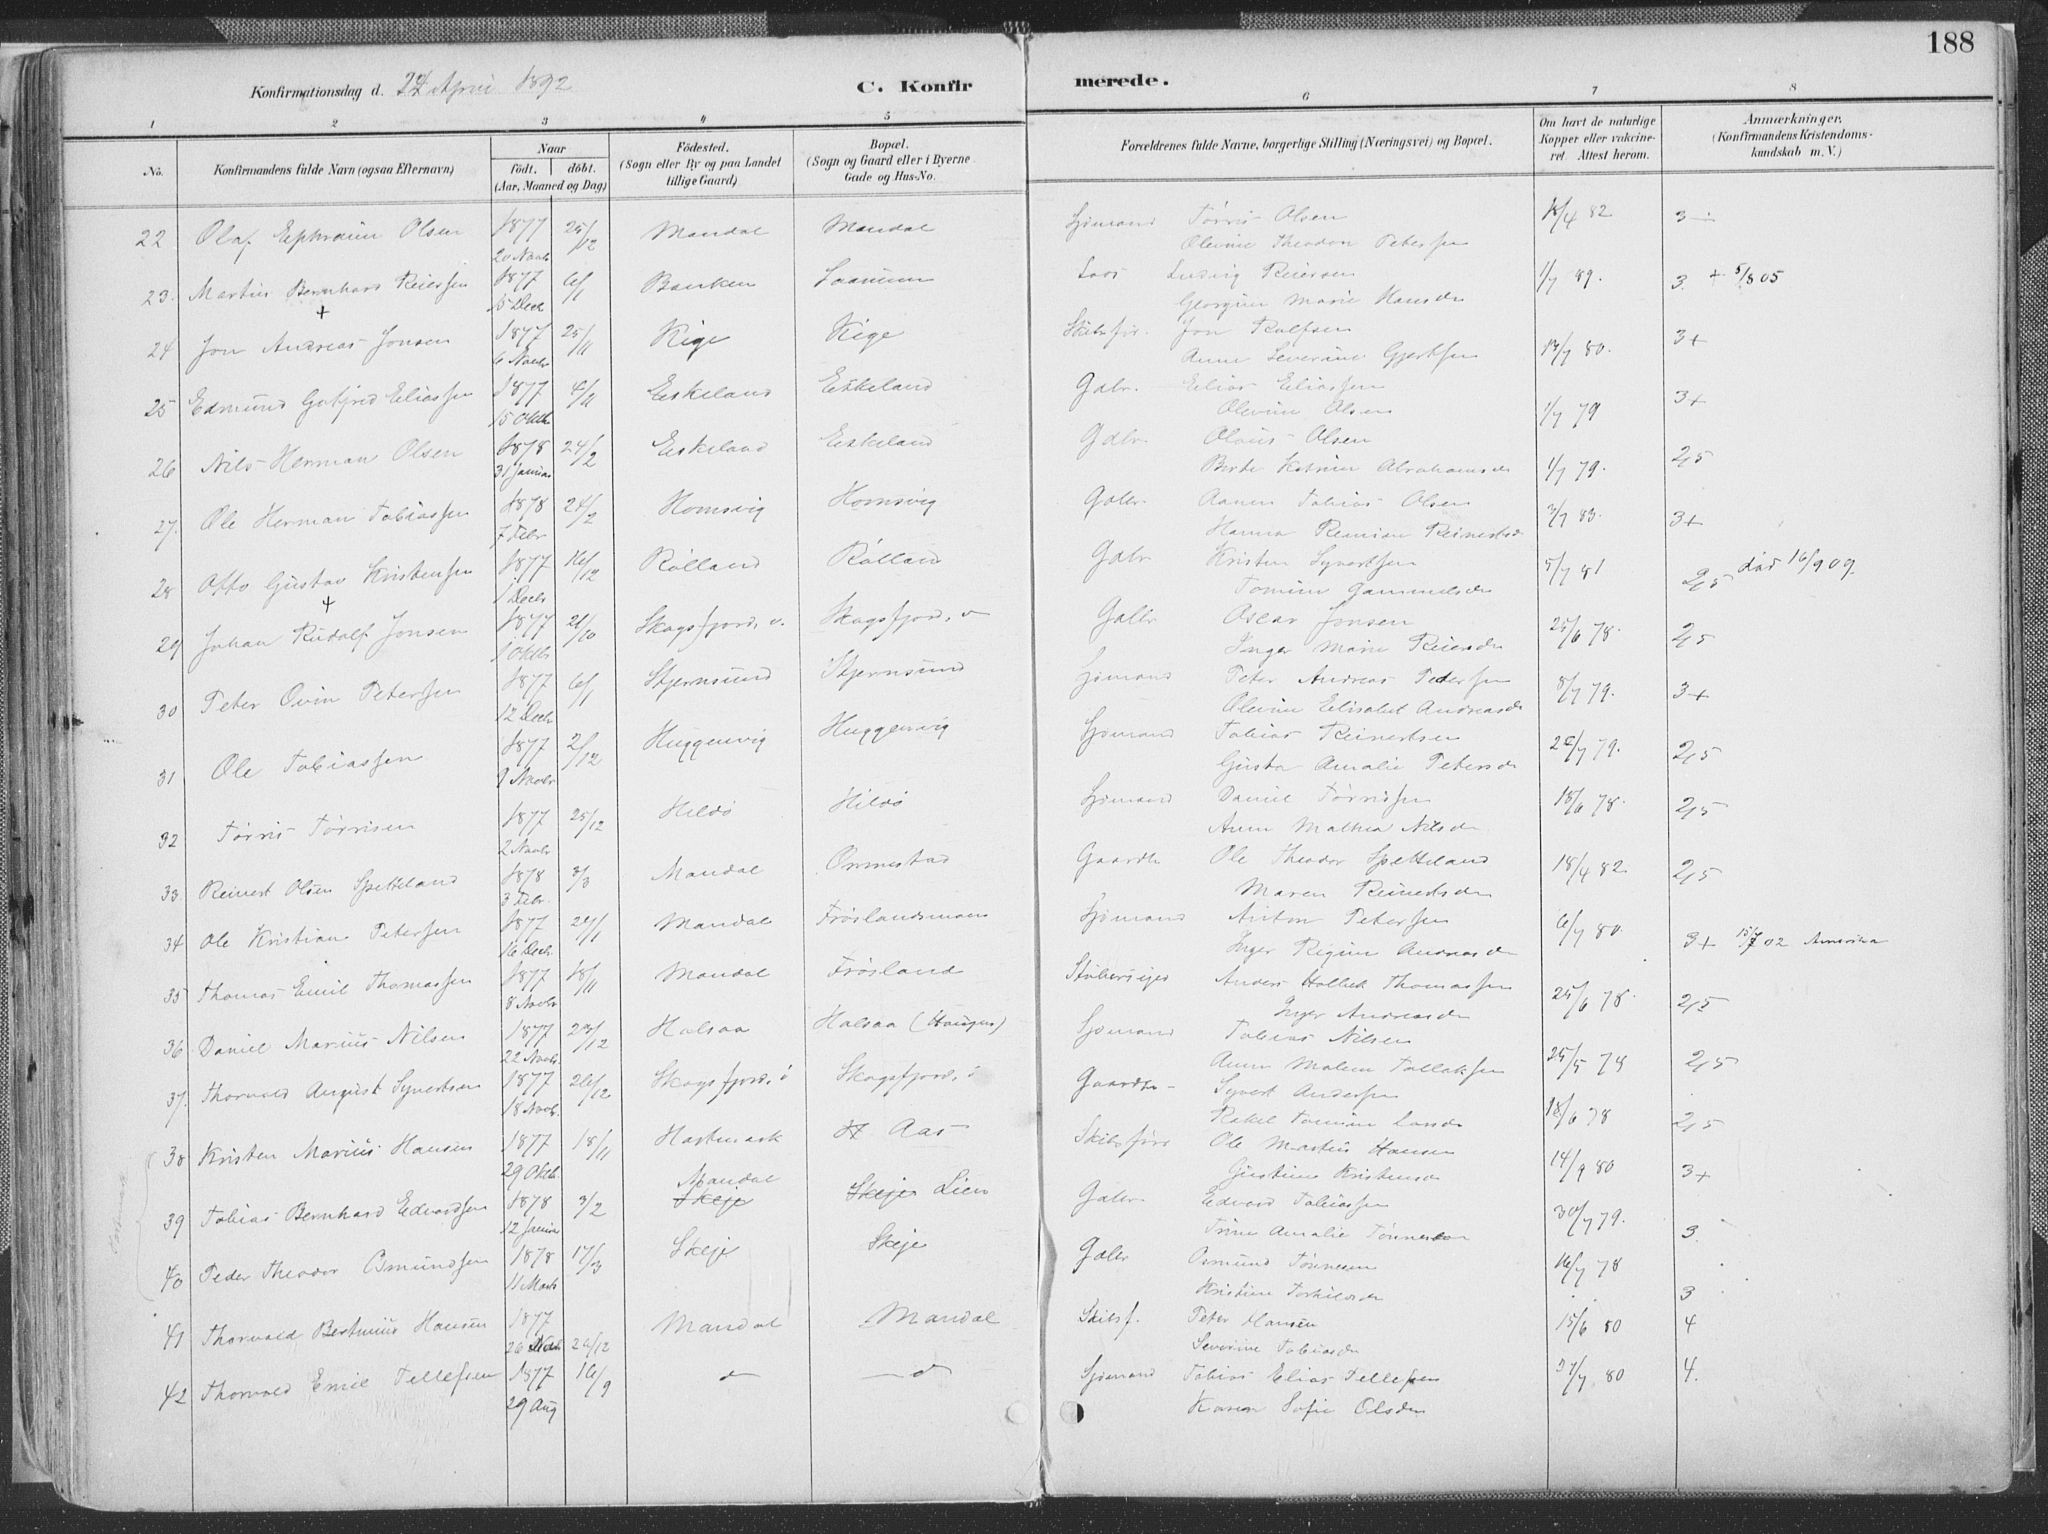 188
Konfirmationsdag d. 24 April 1892
C. Konfirmerede.
1 2 3 4 5 6 7 8
No. Konfirmandens fulde Navn (ogsaa Efternavn) Naar født. døbt. (Aar, Maaned og Dag) Fødested. (Sogn eller By og paa Landet tillige Gaard) Bopæl. (Sogn og Gaard eller i Byerne Gade og Hus-No. Forældrenes fulde Navne, borgerlige Stilling (Næringsvei) og Bopæl. Om havt de naturlige Kopper eller vakcineret Attest herom. Anmærkninger. (Konfirmandens Kristendomskundskab m. V.)
22 Olaf Ephraim Olsen 1877 20 Novbr 25/12 Mandal Mandal Sjømand Tørris Olsen 18/4 82 3
Olevine Theodora Petersen
23. Martin Bernhard Reiersen 1877 15 Decb 6/1 Banken Saanum Lods Ludvig Reiersen 1/7 89. 3. + 5/8 05
+ Georgine Marie Hansdr
24 Jon Andreas Jonsen 1877 6 Novbr 25/11 Kige Kige Skibsfør. Jon Rolfsen 14/7 80. 3+
Anne Severine Gjertsen
25 Edmund Gotfred Eliassen 1877 15 Oktb 4/11 Eskeland Eskeland Gdbr. Elias Eliassen 1/7 79 3+
Olevine Olsen
26 Nils Herman Olsen 1878 31 Januar 24/2 Eskeland Eskeland Gdbr. Olaus Olsen 1/7 79. 2,5
Berte Katrine Abrahamsdr
27. Ole Herman Tobiassen 1878 7 Febr 24/2 Homsvig Homsvig Gdbr. Aanen Tobias Olsen 3/7 83. 3+
Hanna Reinertsdr
28 Otto Gustav Kristensen 1877 1 Decbr 16/12 Rølland Rølland Gdbr Kristen Syvertsen 5/7 81 2,5 død 16/9 09.
+ Tomine Gammelsdr
29 Johan Rudolf Jonsen 1877 1 Oktb 21/10 Skogsfjord, v. Skogsfjord, v Gdbr Oscar Jonsen 25/6 78. 2,5
Inger Marie Reiersdr
30 Peter Ovin Petersen 1877 12 Decb 6/1 Stjernsund Stjernsund Sjømand Peter Andreas Petersen 8/7 79. 3+
Olevine Elisabet Andreasdr
31 Ole Tobiassen 1877 1 Novbr 2/12 Huggenvig Huggenvig Sjømand Tobias Reinertsen 26/7 79. 2,5
Gusta Amalie Petersdr
32 Tørris Tørrisen 1877 2 Novbr 25/12 Hildø Hildø Sjømand Daniel Tørrissen 18/6 78. 2,5
Anne Mathea Nilsdr
33. Reinert Olsen Spetteland 1878 3 Febr. 3/3 Mandal Ommestad Gaardb Ole Theodor Spetteland 18/4 82 2,5
Maren Reinertsdr
34 Ole Kristian Petersen 1877 16 Decb. 24/1 Mandal Frøslandsmoen Sjømand Anton Petersen 6/7 80. 3+ 15/7 02 Amerika
Inger Regine Andreasdr
35 Thomas Emil Thomassen 1877 8 Novbr 18/11 Mandal Frøsland Anders Thomassen 25/6 78. 2,5
Inger Andreasdr
36 Daniel Marius Nilsen 1877 22 Novb. 23/12 Halsaa Halsaa (Haugen) Sjømand Tobias Nilsen 25/5 78 2,5
Anne Malene Tollaksen
37. Thorvald August Syvertsen 1877 18 Novb. 26/12 Skogsfjord, i Skogsfjord, i Gaardbr. Syvert Andersen 18/6 78 2,5
Rakel Tomine Larsdr
38 Kristen Marius Hansen 1877 29 Oktb. 18/11 Hartmark Aas Skibsfører Ole Martius Hansen 14/9 80 3+
Gustine Kristensdr
39 Tobias Bernhard Edvardsen 1878 12 Januar 3/2 Mandal Skeje Skeje Lien Gdbr. Edvard Tobiassen 30/7 79. 3.
Trine Amalie Tønnesdr
40 Peder Theodor Osmundsen 1878 11 Marts 17/3 Skeje Skeje Gdbr Osmund Tønnesen 16/7 78 3
Kristine Torkildsdr
41 Thorvald Hansen 1877 26/12 Mandal Mandal Skibsf. Peter Hansen 15/6 80 4
Severine Tobiasdr
42 Thorvald Emil Tellefsen 1877 29 Aug 16/9 — d — d Sjømand Tobias Elias Tellefsen 31/7 80 4.
Karen Sofie Olsdr